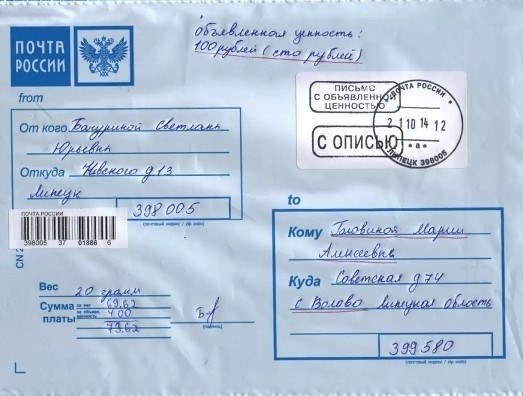 объявленная ценность:
100 рублей (сто рублей)
ПОЧТА
РОССИИ
ПИСЬМО
С ОБЪЯВЛЕННОЙ
ЦЕННОСТЬЮ
С ОПИСЬЮ
ПОЧТА РОССИИ
21 10 14 12
а
ЛИПЕЦК 398005
from
От кого Бачуриной Светланы
Юрьевны
Откуда Невского д 13
Липецк
398005
(почтовый индекс / zip code)
ПОЧТА РОССИИ
398005 37 01886 6
CN
to
Кому Головиной Марии
Алексеевне
Куда Советская д 74
с Волово Липецкая область
399580
(почтовый индекс / zip code)
Вес 20 грамм
Сумма за вес 69.62
платы за объявл. ценность 4.00
73.62
(подпись)